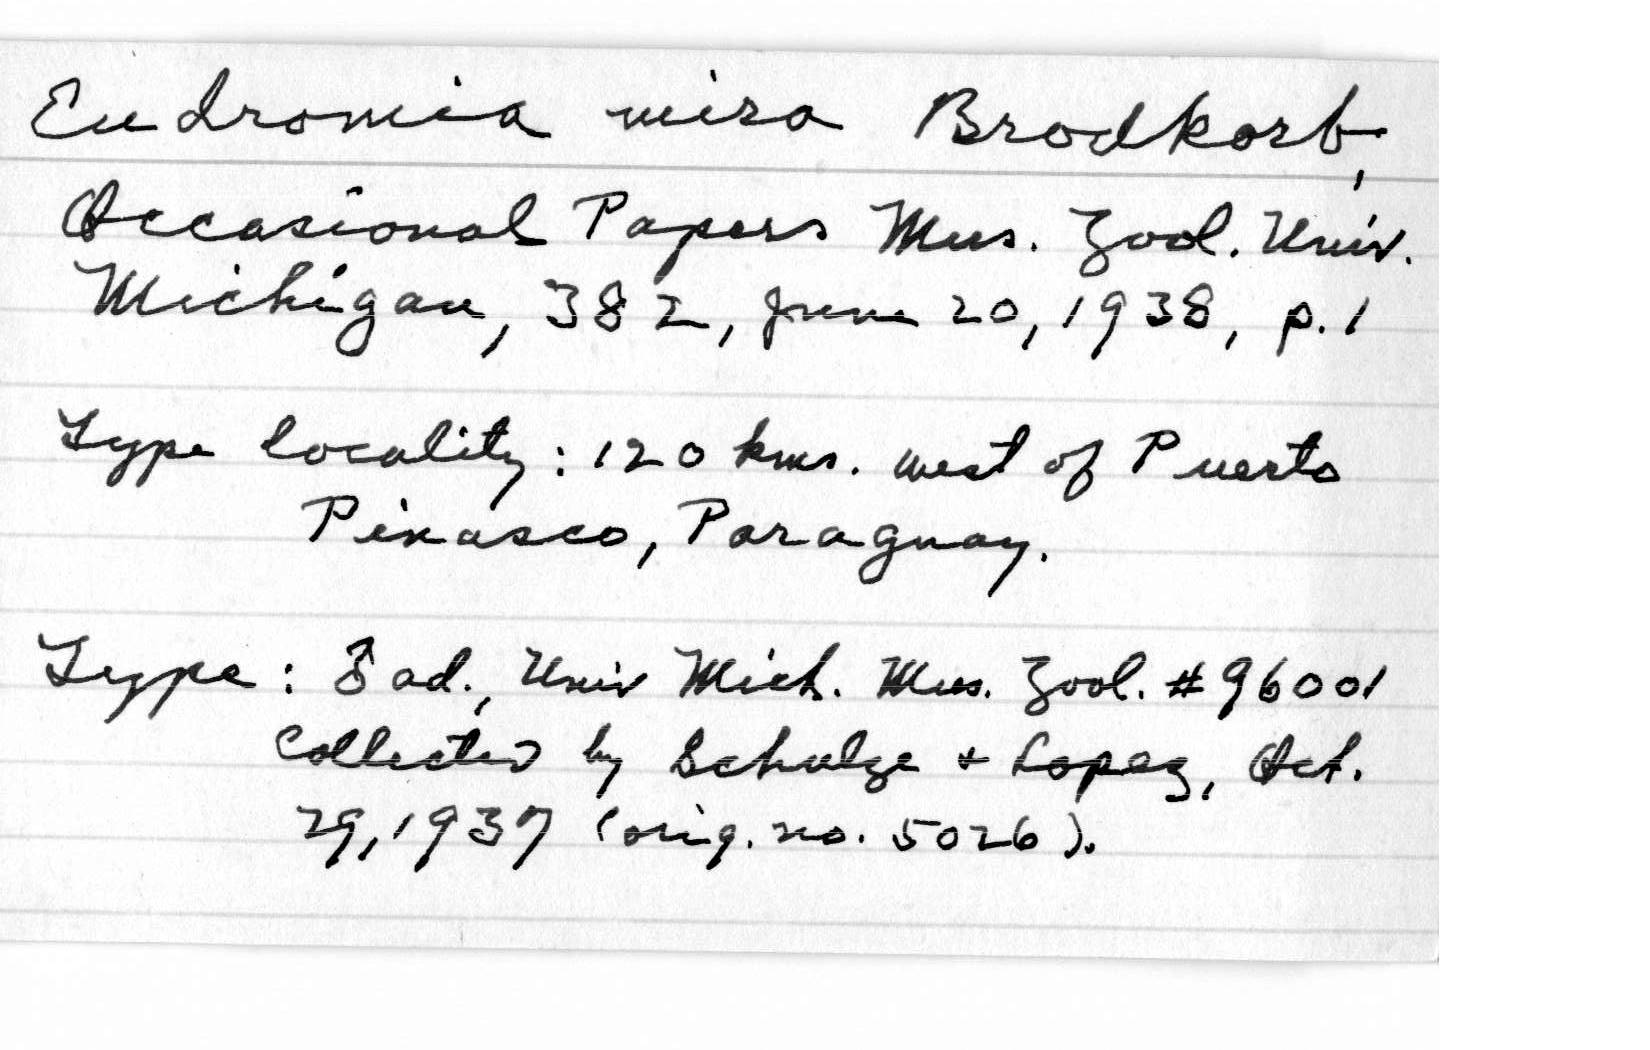 Eudromia mira Brodkorb,
Occasional Papers Mus. Zool. Univ.
Michigan, 382, June 20, 1938, p. 1
Type locality: 120 kms. west of Puerto
Pinasco, Paraguay.
Type: ♂ ad., Univ Mich. Mus. Zool. #96001
Collected by Schulze + Lopez, Oct.
29, 1937 (orig. no. 5026).